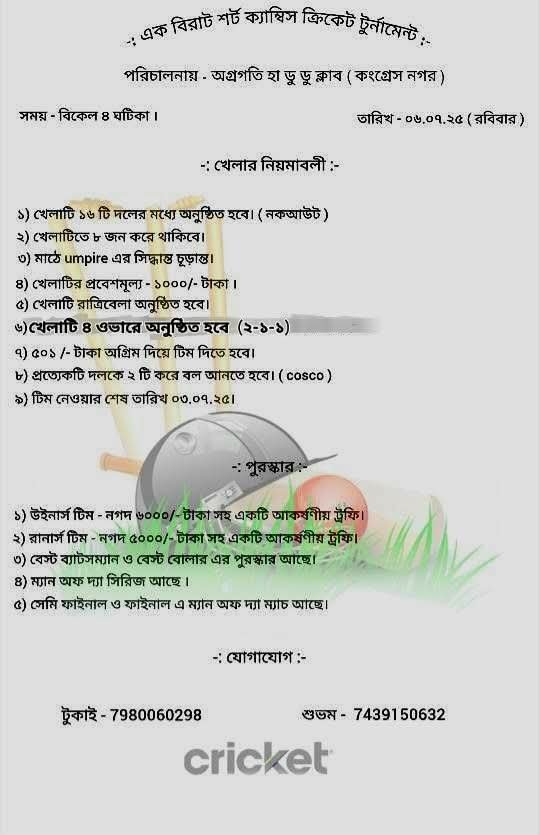 -: এক বিরাট শর্ট ক্যাম্বিস ক্রিকেট টুর্নামেন্ট :-
পরিচালনায় - অগ্রগতি হা ডু ডু ক্লাব ( কংগ্রেস নগর )
সময় - বিকেল ৪ ঘটিকা।
তারিখ - ০৬.০৭.২৫ ( রবিবার )
-: খেলার নিয়মাবলী :-
১) খেলাটি ১৬ টি দলের মধ্যে অনুষ্ঠিত হবে। ( নকআউট )
২) খেলাটিতে ৮ জন করে থাকিবে।
৩) মাঠে umpire এর সিদ্ধান্ত চূড়ান্ত।
৪) খেলাটির প্রবেশমূল্য - ১০০০/- টাকা ।
৫) খেলাটি রাত্রিবেলা অনুষ্ঠিত হবে।
৬) খেলাটি ৪ ওভারে অনুষ্ঠিত হবে (২-১-১)
৭) ৫০১ /- টাকা অগ্রিম দিয়ে টিম দিতে হবে।
৮) প্রত্যেকটি দলকে ২ টি করে বল আনতে হবে। ( cosco )
৯) টিম নেওয়ার শেষ তারিখ ০৩.০৭.২৫।
-: পুরস্কার :-
১) উইনার্স টিম - নগদ ৬০০০/- টাকা সহ একটি আকর্ষণীয় ট্রফি।
২) রানার্স টিম - নগদ ৫০০০/- টাকা সহ একটি আকর্ষণীয় ট্রফি।
৩) বেস্ট ব্যাটসম্যান ও বেস্ট বোলার এর পুরস্কার আছে।
৪) ম্যান অফ দ্যা সিরিজ আছে ।
৫) সেমি ফাইনাল ও ফাইনাল এ ম্যান অফ দ্যা ম্যাচ আছে।
-: যোগাযোগ :-
টুকাই - 7980060298
শুভম - 7439150632
cricket